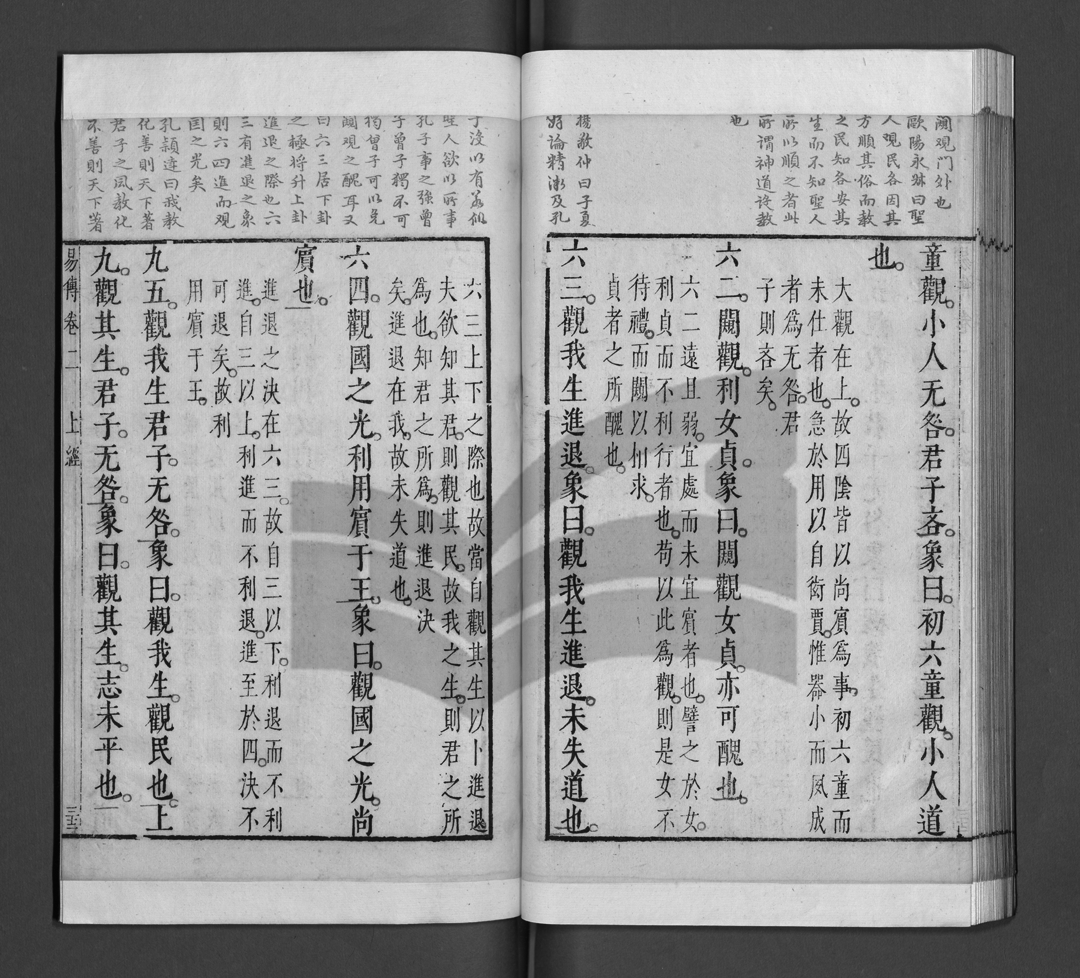 闚觀門外也
歐陽永叔曰聖
人觀民各因其
方順其俗而教
之民知各安其
生而不知聖人
所以順之者此
所謂神道設教
也
楊敬仲曰子夏
好論精微及孔
童觀小人无咎君子吝象曰初六童觀小人道
也
大觀在上故四陰皆以尚賓為事初六童而
未仕者也急於用以自衒賈惟器小而夙成
者為无咎君
子則吝矣
六二闚觀利女貞象曰闚觀女貞亦可醜也
六二遠且弱宜處而未宜賓者也譬之於女
利貞而不利行者也苟以此為觀則是女不
待禮而闚以相求
貞者之所醜也
六三觀我生進退象曰觀我生進退未失道也
子沒以有若似
聖人欲以所事
孔子事之強曾
子曾子獨不可
獨曾子可以免
闚觀之醜耳又
曰六三居下卦
之極將升上卦
進退之際也六
三有進退之象
則六四進而觀
國之光矣
孔穎達曰我教
化善則天下著
君子之風教化
不善則天下著
六三上下之際也故當自觀其生以卜進退
夫欲知其君則觀其民故我之生則君之所
為也知君之所為則進退決
矣進退在我故未失道也
六四觀國之光利用賓于王象曰觀國之光尚
賓也
進退之決在六三故自三以下利退而不利
進自三以上利進而不利退進至於四決不
可退矣故利
用賓于王
九五觀我生君子无咎象曰觀我生觀民也上
九觀其生君子无咎象曰觀其生志未平也
易傳卷二 上經